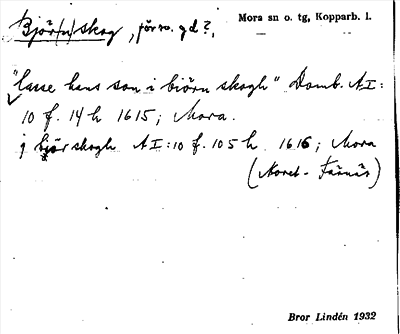 Björ(n)skog, försv. gd?, Mora sn o. tg, Kopparb. l.
"lasse hans son i biörn skogh" Domb. AI:
10 f. 14 h 1615; Mora.
j biör skogh AI:10 f. 105 h 1616; Mora
(Noret - Färnäs)
Bror Lindén 1932